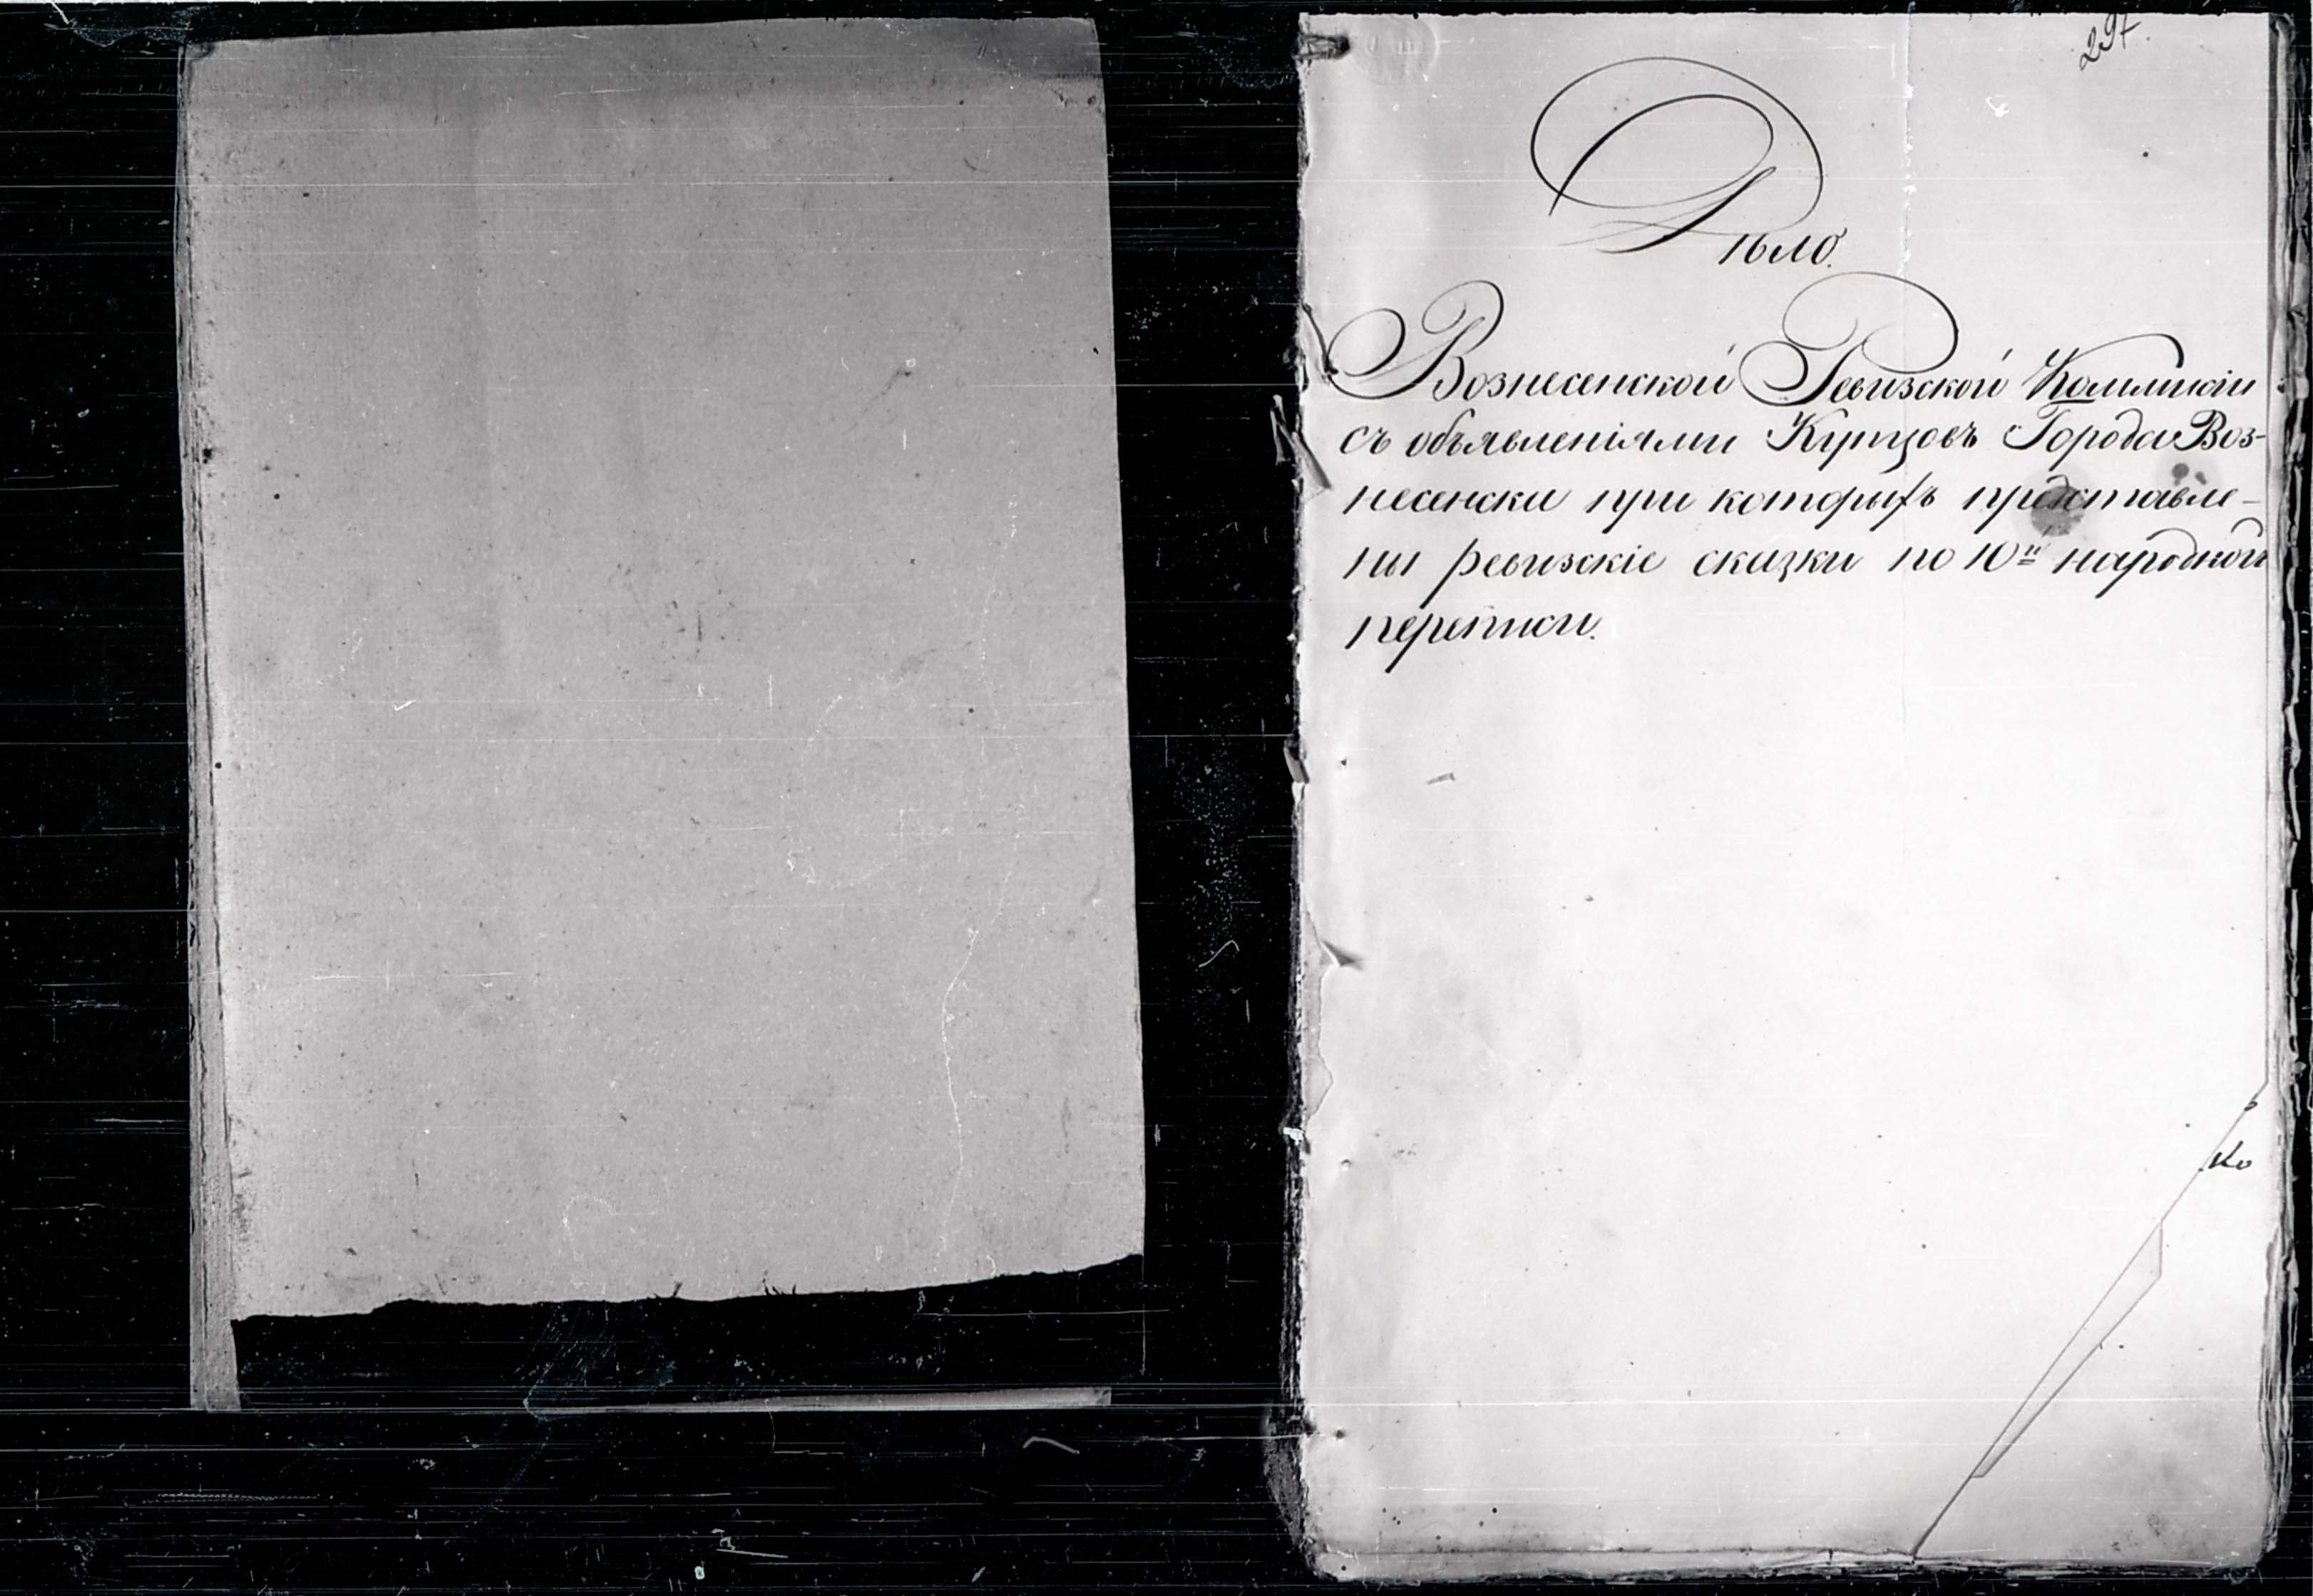 297.
Дѣло.
Вознесенской Ревизской Коммисіи
съ объявленіями Купцовъ Города Воз-
несенска при которыхъ представле-
ны ревизскіе сказки по 10й народной
переписи.
ко